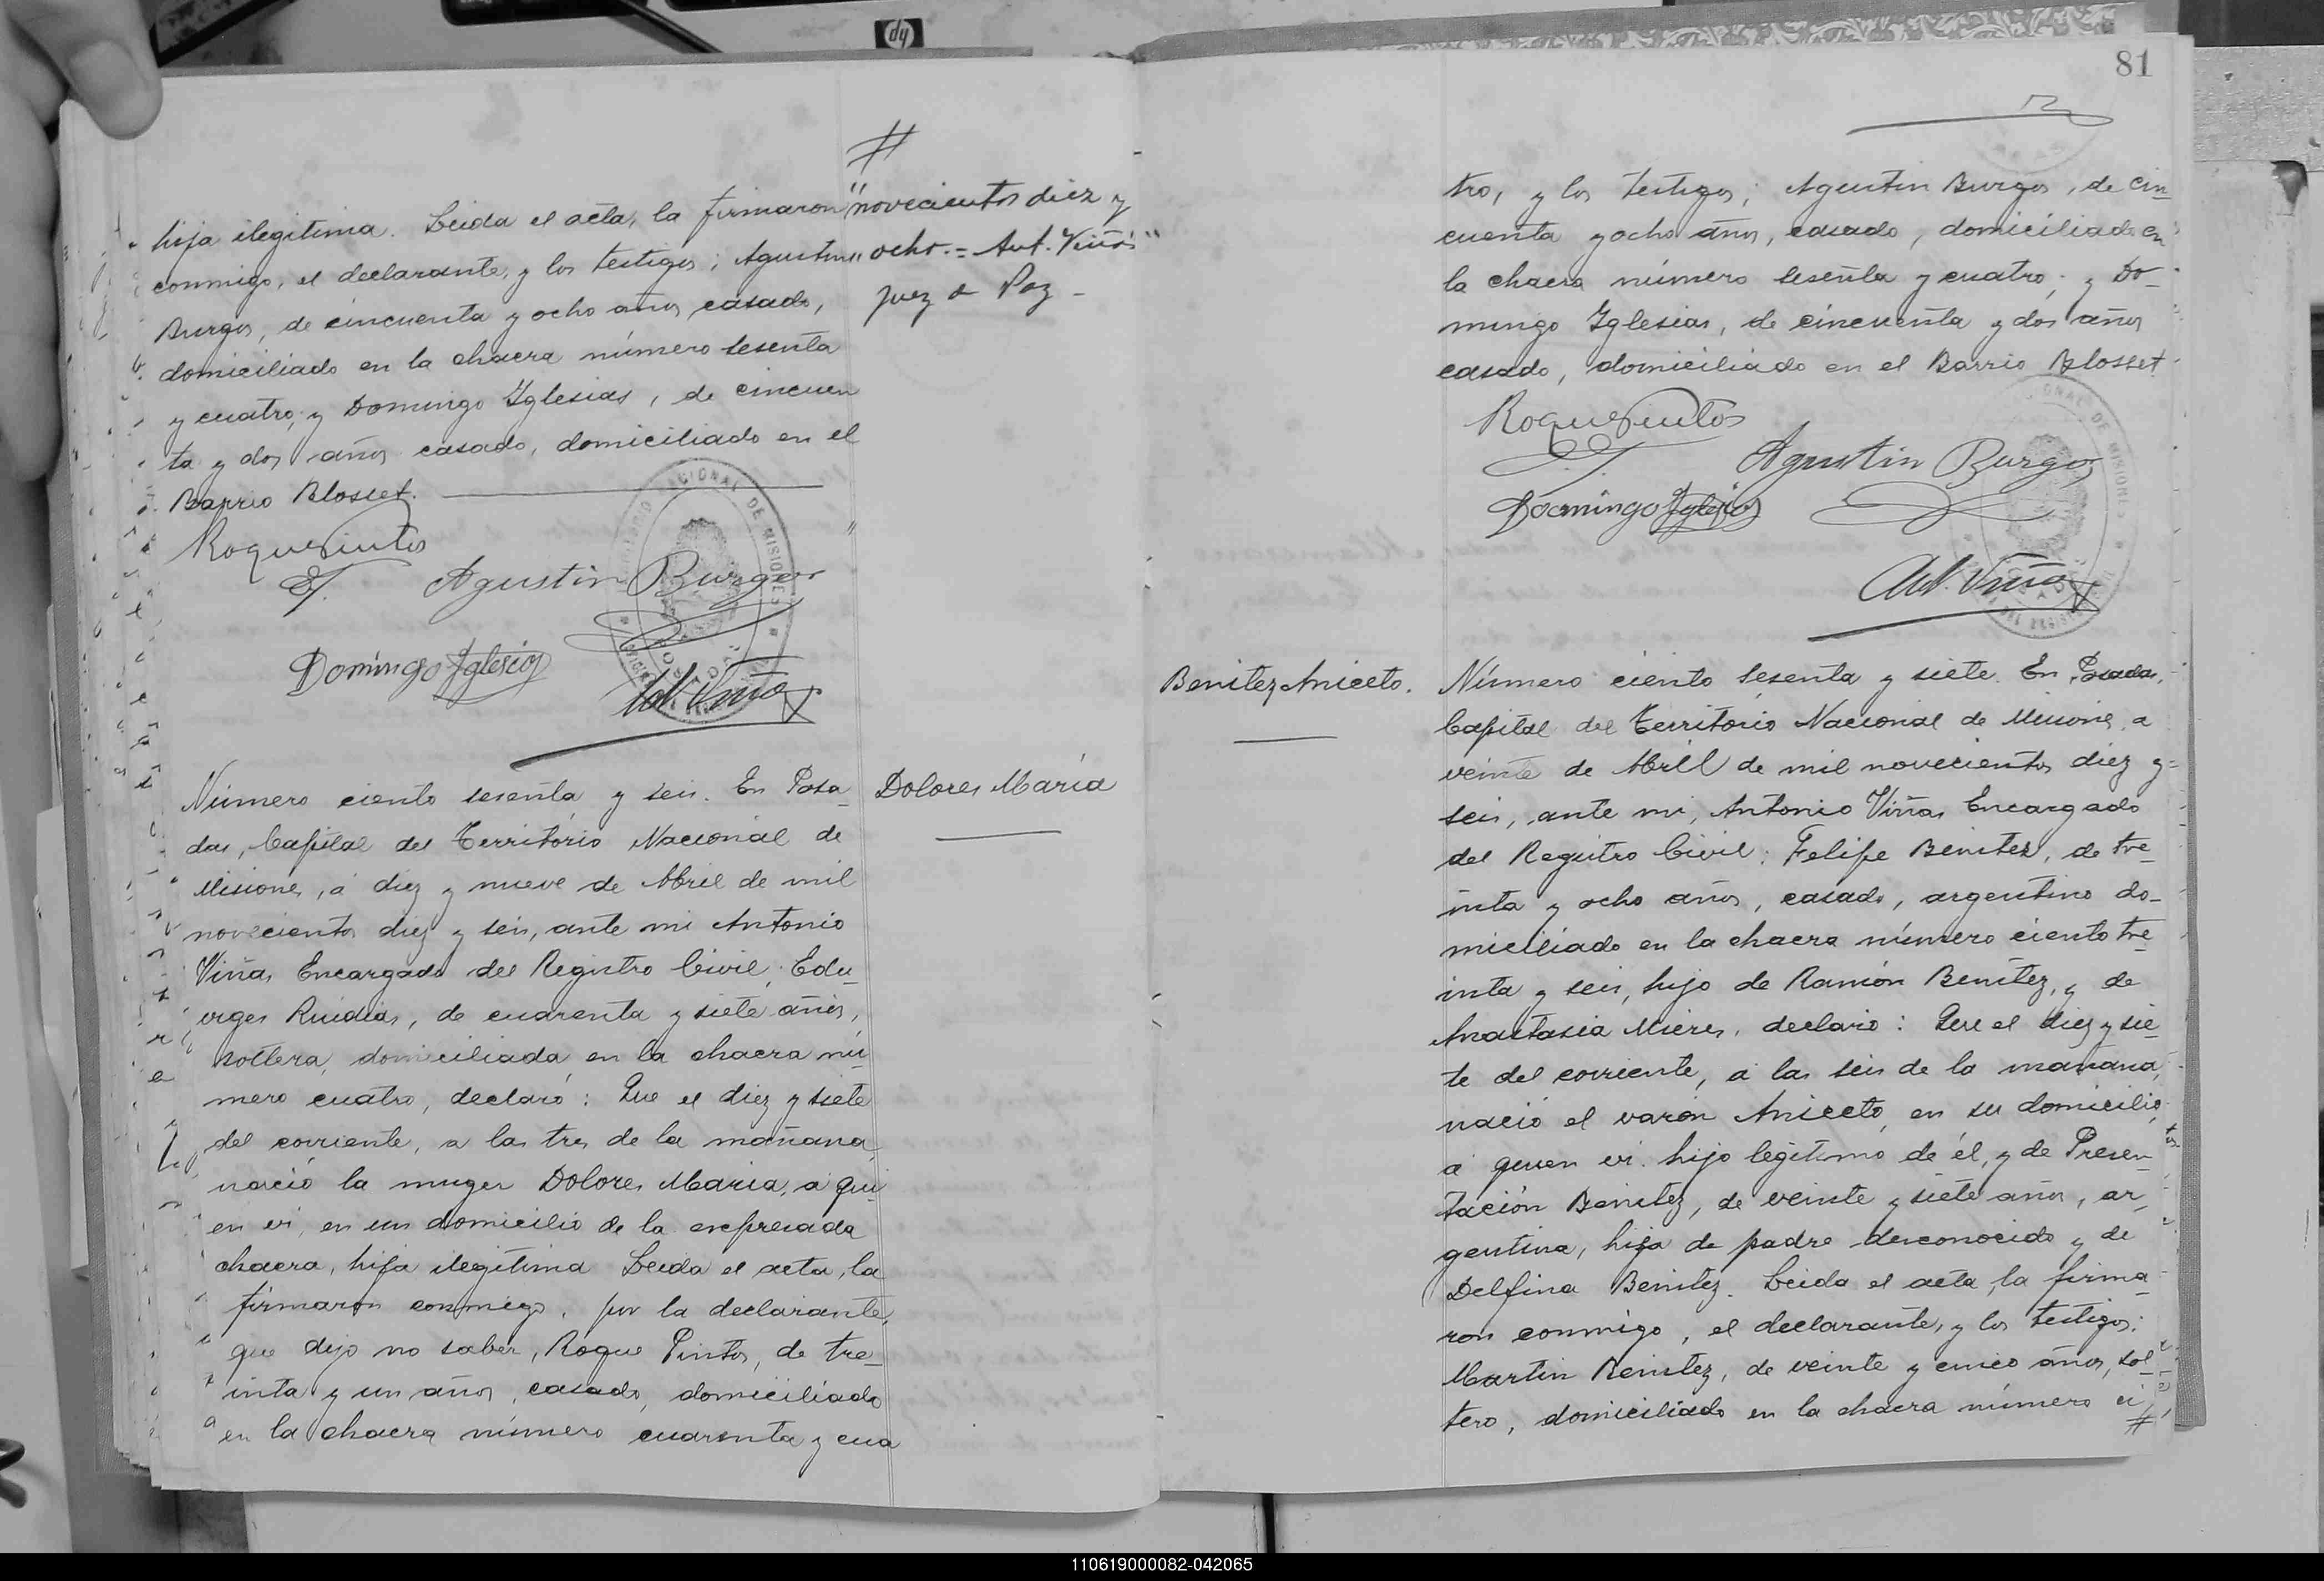 hp
hija ilegitima. Leida el acta, la firmaron
conmigo, el declarante, y los testigos; Agustin
Burgos, de cincuenta y ocho años, casado,
domiciliado en la chacra número sesenta
y cuatro; y Domingo Iglesias, de cincuen
ta y dos años casado, domiciliado en el
Barrio Blosset.
#
"novecientos diez y
" ocho. = Ant. Viñas"
Juez de Paz -
Roque Pintos
Agustin Burgos
Domingo Iglesias
Ant. Viñas
TERRITORIO NACIONAL DE MISIONES
POSADAS
Número ciento sesenta y seis. En Posa-
das, Capital del Território Nacional de
Misiones, á diez y nueve de Abril de mil
novecientos diez y seis, ante mi Antonio
Viñas Encargado del Registro Civil; Edu-
viges Ruidias, de cuarenta y siete años,
soltera, domiciliada en la chacra nú-
mero cuatro, declaró: Que el diez y siete
del corriente, a las tres de la mañana,
nació la muger Dolores Maria, a qui
en vi, en un domicilio de la expresada
chacra, hija ilegitima Leida el acta, la
firmaron conmigo, por la declarante,
que dijo no saber, Roque Pintos, de tre-
inta y un años, casado, domiciliado
en la chacra número cuarenta y cua
Dolores María
81
tro, y los testigos; Agustin Burgos, de cin-
cuenta y ocho años, casado, domiciliado en
la chacra número sesenta y cuatro; y Do-
mingo Iglesias, de cincuenta y dos años
casado, domiciliado en el Barrio Blosset.
Roque Pintos
Agustin Burgos
Domingo Iglesias
Ant. Viñas
Benitez Aniceto.
Número ciento sesenta y siete. En Posadas,
Capital del Território Nacional de Misiones, a
veinte de Abril de mil novecientos diez y
seis, ante mi, Antonio Viñas Encargado
del Registro Civil; Felipe Benitez, de tre-
inta y ocho años, casado, argentino do-
miciliado en la chacra número ciento tre
inta y seis, hijo de Ramón Benítez, y de
Anastasia Mieres, declaró: Que el diez y sie
te del corriente, a las seis de la mañana,
nació el varón Aniceto, en su domicilio,
a quien vi. hijo legitimo de él, y de Presen-
tación Benitez, de veinte y siete años, ar-
gentina, hija de padre desconocido y de
Delfina Benitez. Leida el acta, la firma-
ron conmigo, el declarante, y los testigos:
Martin Benitez, de veinte y cinco años, sol-
tero, domiciliado en la chacra número ci
#
110619000082-042065